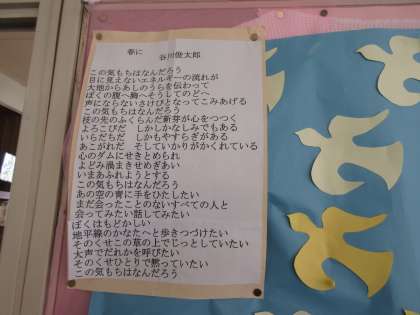 春に
谷川俊太郎
この気もちはなんだろう
目に見えないエネルギーの流れが
大地からあしのうらを伝わって
ぼくの腹へ胸へそうしてのどへ
声にならないさけびとなってこみあげる
この気もちはなんだろう
枝の先のふくらんだ新芽が心をつつく
よろこびだ しかしかなしみでもある
いらだちだ しかもやすらぎがある
あこがれだ そしていかりがかくれている
心のダムにせきとめられ
よどみ渦まきせめぎあい
いまあふれようとする
この気もちはなんだろう
あの空の青に手をひたしたい
まだ会ったことのないすべての人と
会ってみたい話してみたい
ぼくはもどかしい
地平線のかなたへと歩きつづけたい
そのくせこの草の上でじっとしていたい
大声でだれかを呼びたい
そのくせひとりで黙っていたい
この気もちはなんだろう